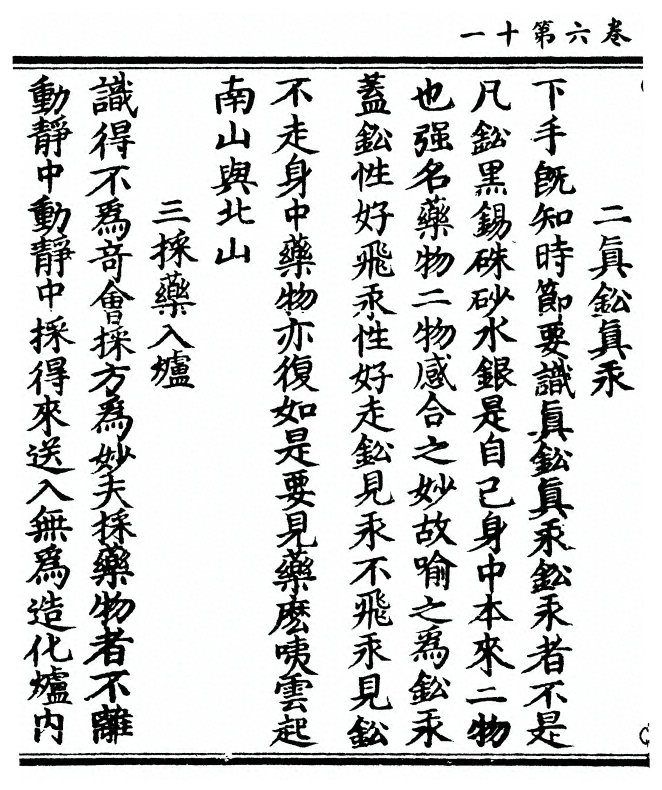 卷六第十一
二眞鈆眞汞
下手旣知時節要識眞鈆眞汞鈆汞者不是
凡鈆黒錫硃砂水銀是自己身中本來二物
也强名藥物二物感合之妙故喻之爲鈆汞
蓋鈆性好飛汞性好走鈆見汞不飛汞見鈆
不走身中藥物亦復如是要見藥麽咦雲起
南山與北山
三採藥入爐
識得不爲竒會採方爲妙夫採藥物者不離
動靜中動靜中採得來送入無爲造化爐内